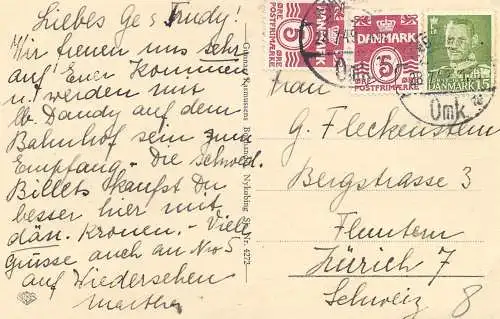 Liebes Ge s Trudy!
Wir freuen uns sehr
auf Euer Kommen
u. werden mit
lb. Dandy auf dem
Bahnhof sein zum
Empfang - Die schwed.
Billets kaufst Du
besser hier mit
dän. Kronen. - Viele
Grüsse auch an No 5
auf Wiedersehen
Martha
Gunnar Rasmussens Boghandel, Nykøbing Sj. Nr. 4273
5 ØRE
POSTFRIMÆRKE
DANMARK
5
POSTFRIMÆRKE
DANMARK 15
Omk
Omk
Herrn
G. Fleckenstein
Bergstrasse 3
Fluntern
Zürich 7
Schweiz 8